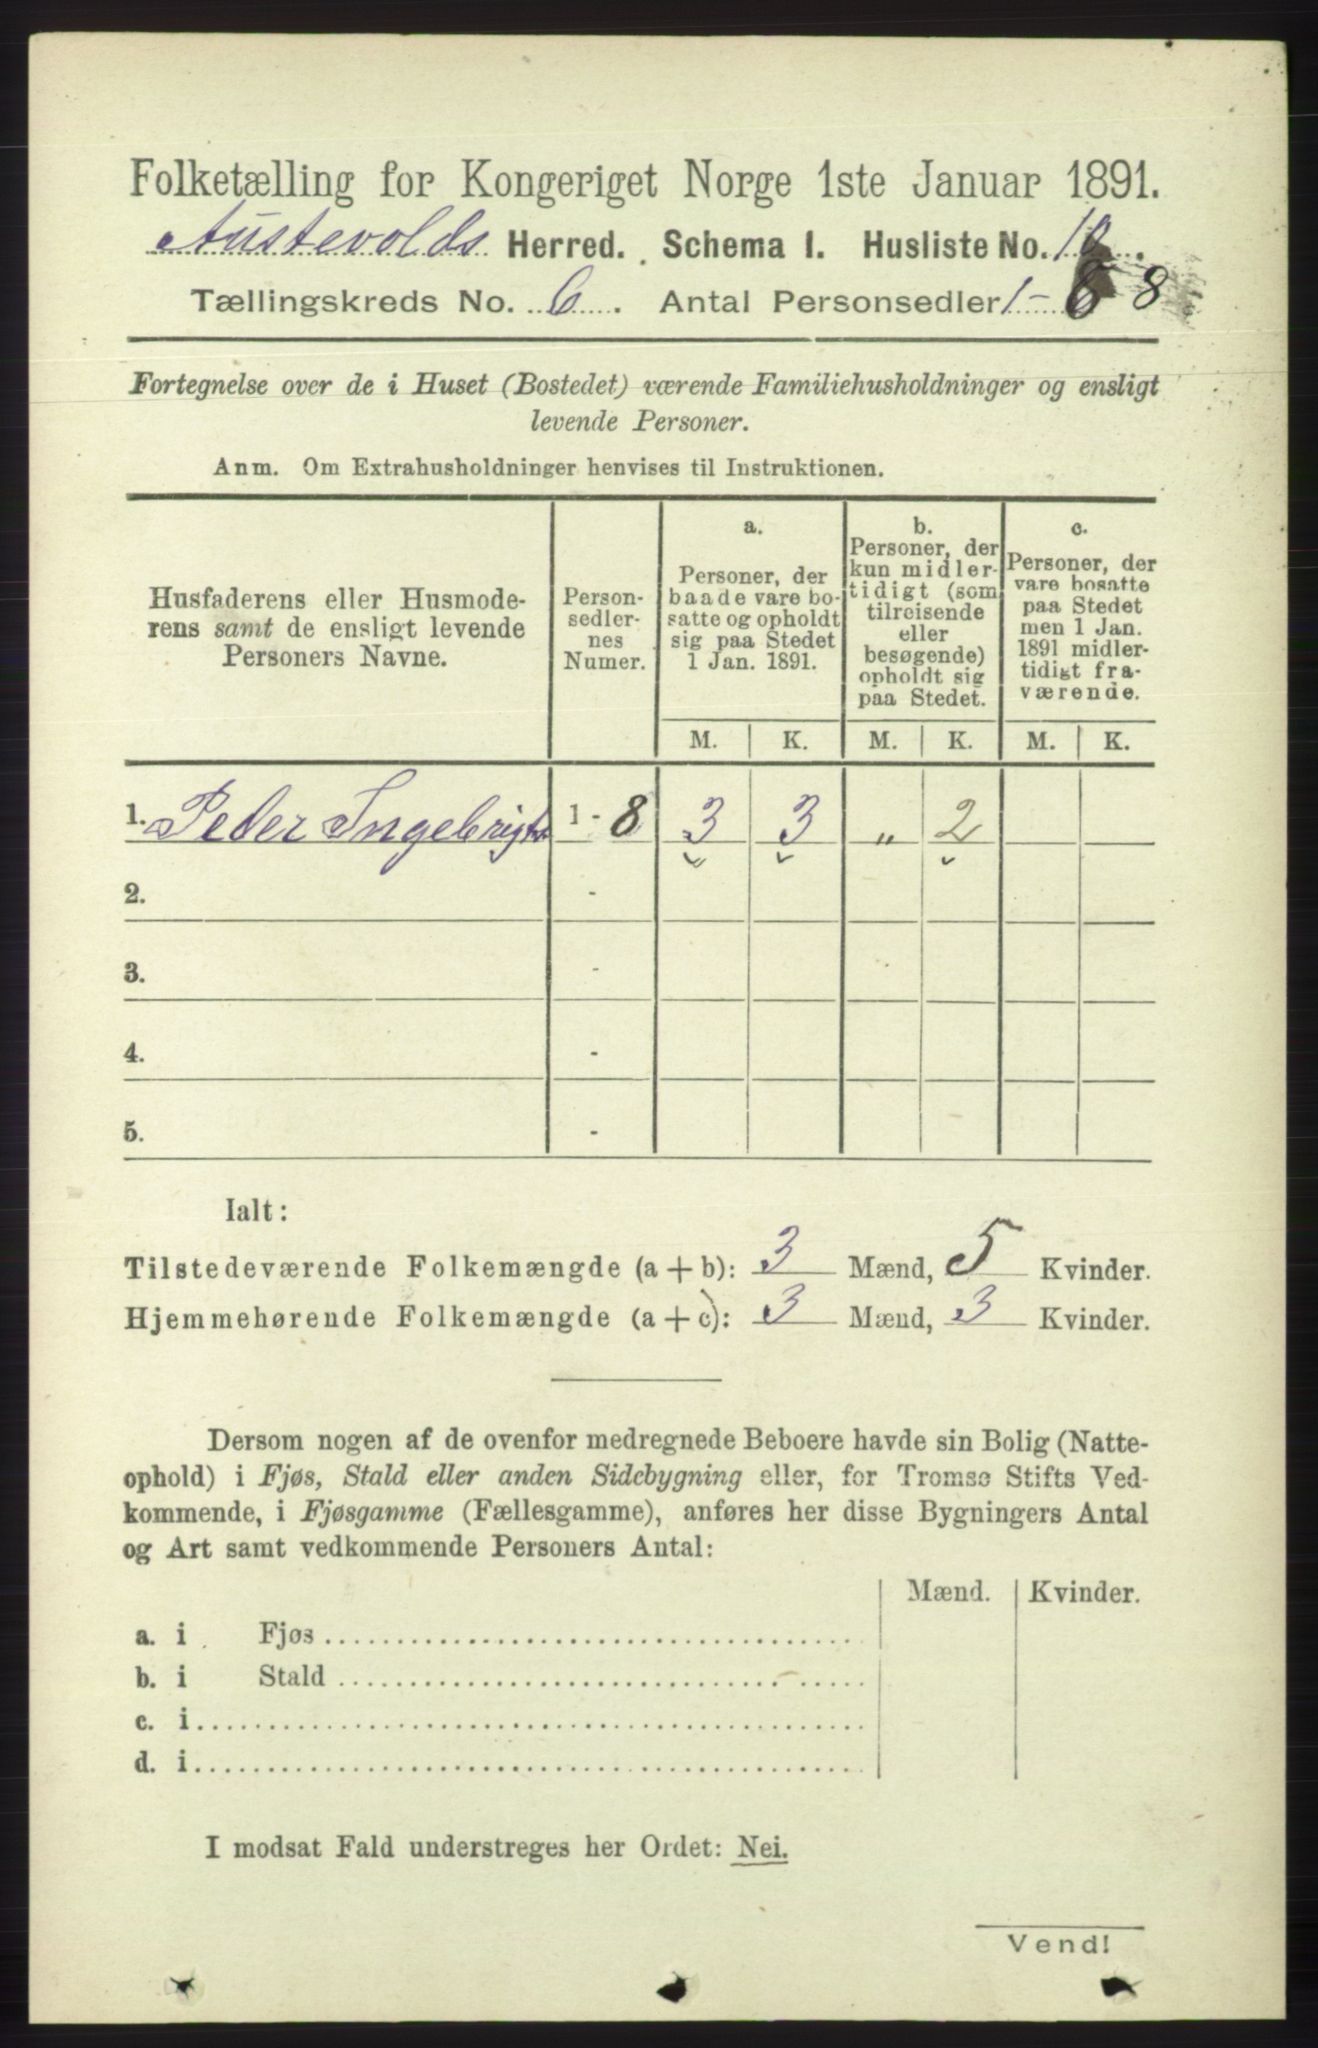 Folketælling for Kongeriget Norge 1ste Januar 1891.
Austevolds Herred. Schema 1. Husliste No. 10.
Tællingskreds No. 6. Antal Personsedler 1-8 8
Fortegnelse over de i Huset (Bostedet) værende Familiehusholdninger og ensligt
levende Personer.
Anm. Om Extrahusholdninger henvises til Instruktionen.
Husfaderens eller Husmode-
rens samt de ensligt levende
Personers Navne.
Person-
sedler-
nes
Numer.
a.
Personer, der
baade vare bo-
satte og opholdt
sig paa Stedet
1 Jan. 1891.
b.
Personer, der
kun midler-
tidigt (som
tilreisende
eller
besøgende)
opholdt sig
paa Stedet.
c.
Personer, der
vare bosatte
paa Stedet
men 1 Jan.
1891 midler-
tidigt fra-
værende.
M. K. M. K. M. K.
1. Peder Ingebrigts 1 - 8 3 3 „ 2
2. -
3. -
4. -
5. -
Ialt:
Tilstedeværende Folkemængde (a + b): 3 Mænd, 5 Kvinder.
Hjemmehørende Folkemængde (a + c): 3 Mænd, 3 Kvinder.
Dersom nogen af de ovenfor medregnede Beboere havde sin Bolig (Natte-
ophold) i Fjøs, Stald eller anden Sidebygning eller, for Tromsø Stifts Ved-
kommende, i Fjøsgamme (Fællesgamme), anføres her disse Bygningers Antal
og Art samt vedkommende Personers Antal:
Mænd. Kvinder.
a. i Fjøs
b. i Stald
c. i
d. i
I modsat Fald understreges her Ordet: Nei.
Vend!